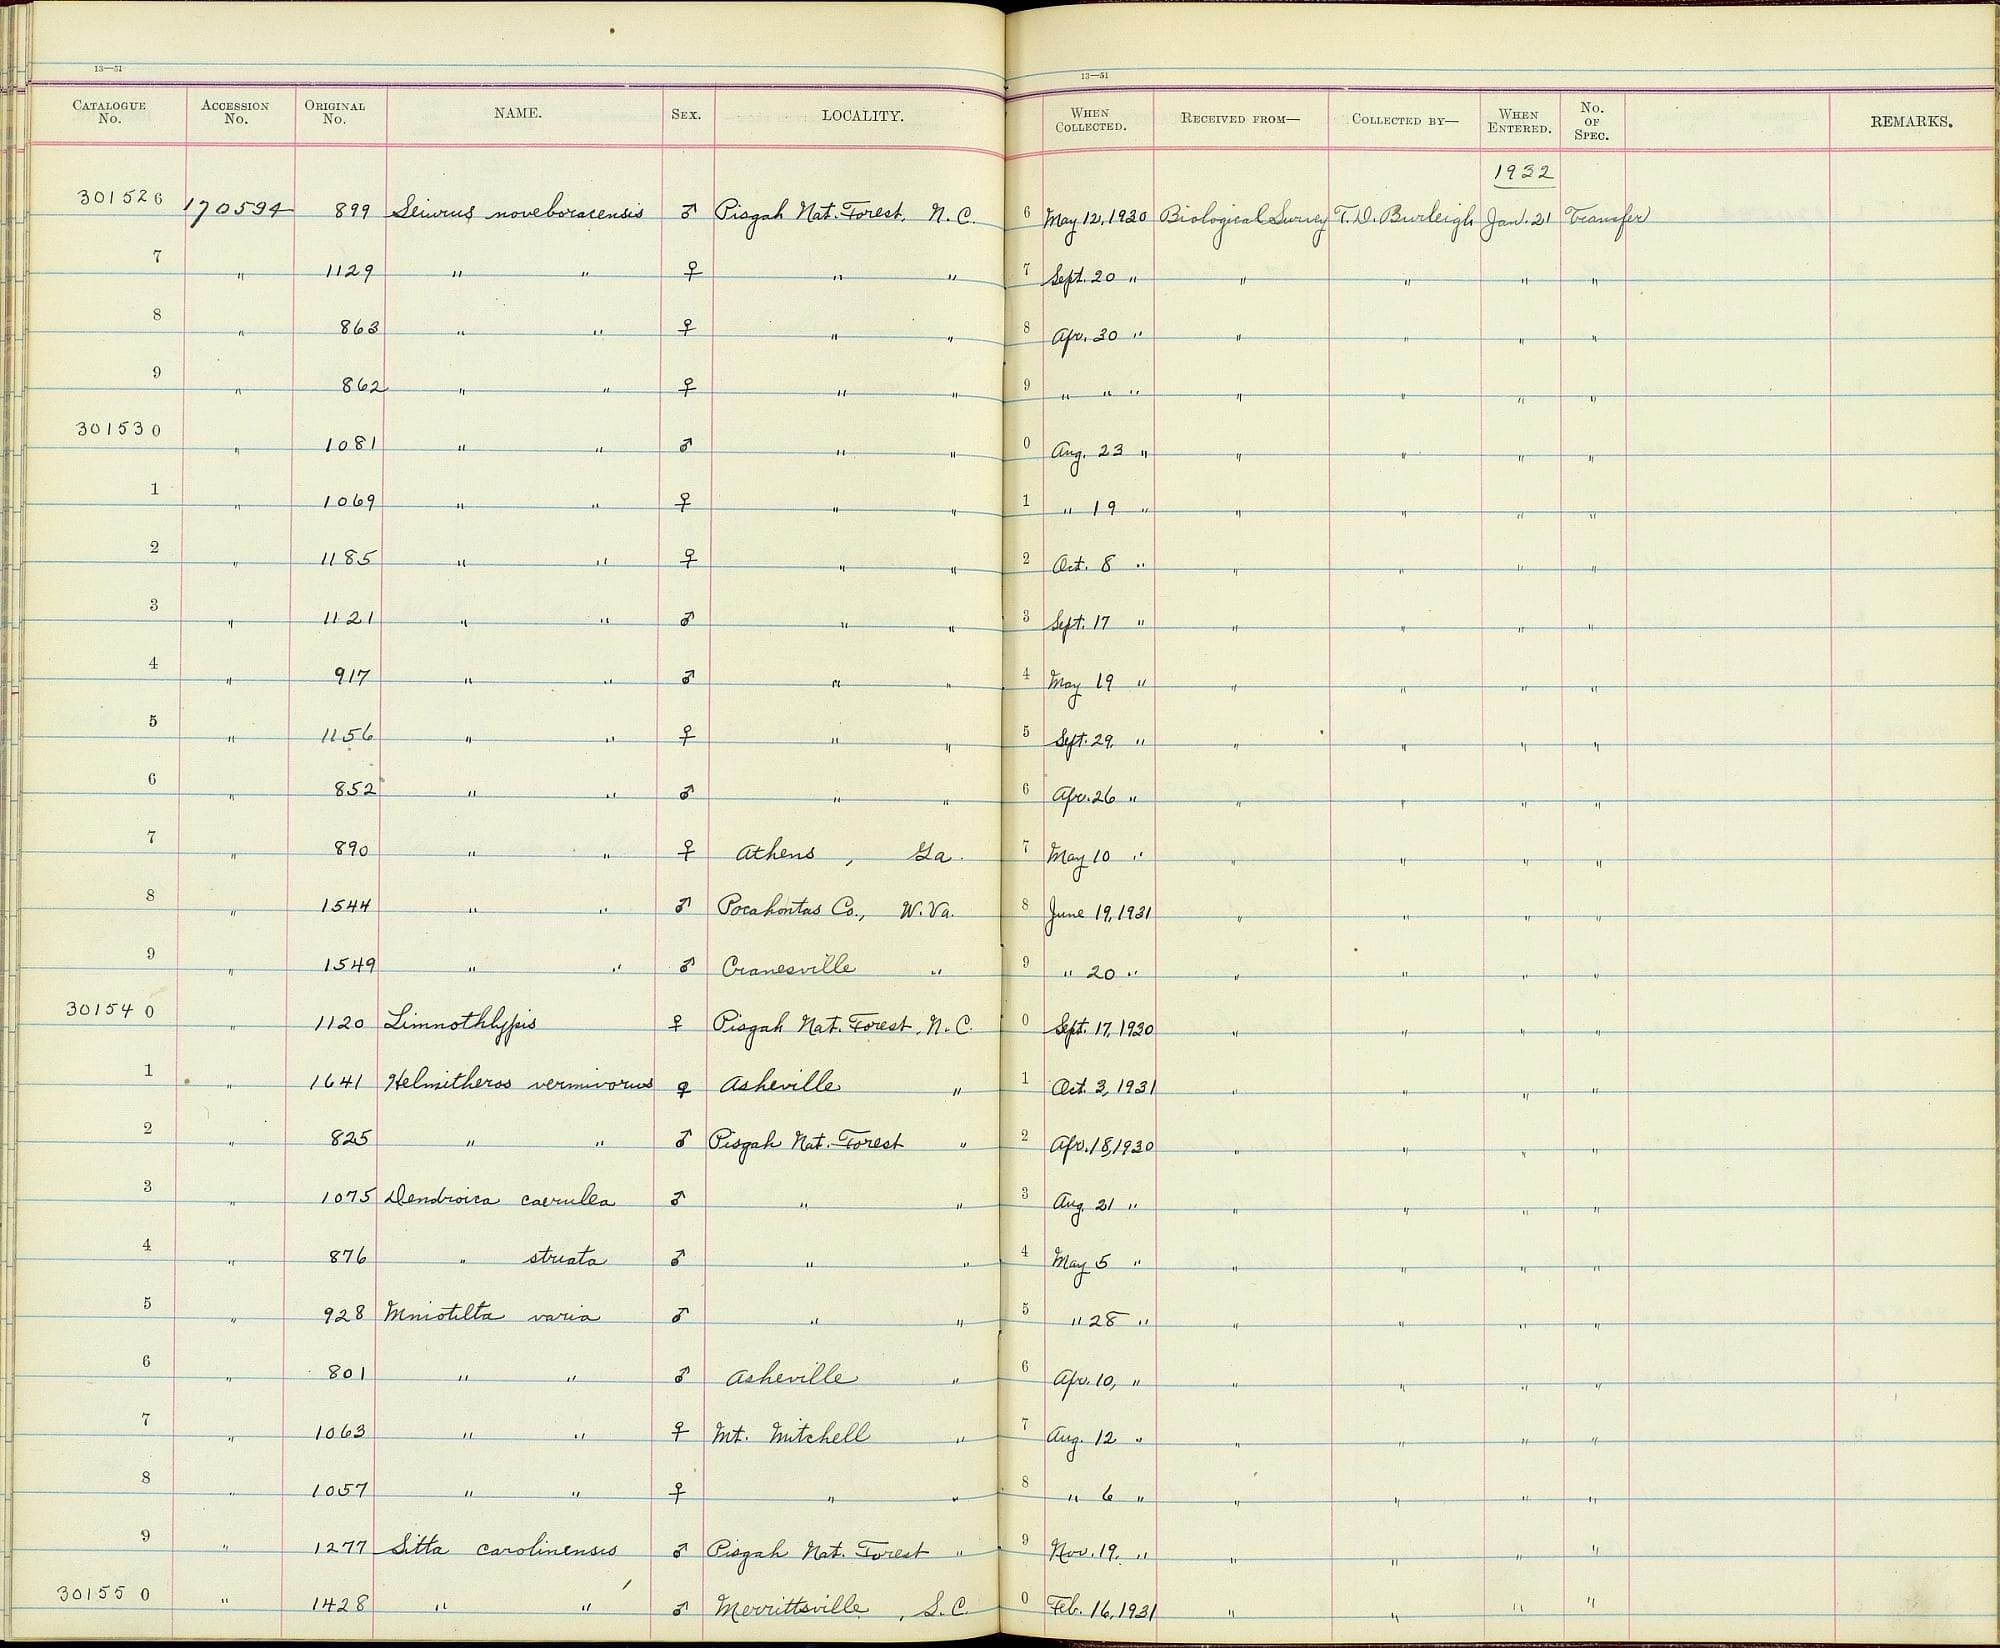 13—51 13—51
CATALOGUE No. ACCESSION No. ORIGINAL No. NAME. SEX. LOCALITY. WHEN COLLECTED. RECEIVED FROM— COLLECTED BY— WHEN ENTERED. No. OF SPEC. REMARKS.
1932
301526 170594 899 Seiurus noveboracensis ♂ Pisgah Nat. Forest, N.C. 6 May 12, 1930 Biological Survey T. D. Burleigh Jan. 21 Transfer
7 " 1129 " " ♀ " " 7 Sept. 20 " " " " "
8 " 863 " " ♀ " " 8 Apr. 30 " " " " "
9 " 862 " " ♀ " " 9 " " " " " " "
301530 " 1081 " " ♂ " " 0 Aug. 23 " " " " "
1 " 1069 " " ♀ " " 1 " 19 " " " " "
2 " 1185 " " ♀ " " 2 Oct. 8 " " " " "
3 " 1121 " " ♂ " " 3 Sept. 17 " " " " "
4 " 917 " " ♂ " " 4 May 19 " " " " "
5 " 1156 " " ♀ " " 5 Sept. 29, " " " " "
6 " 852 " " ♂ " " 6 Apr. 26 " " " " "
7 " 890 " " ♀ Athens, Ga. 7 May 10 " " " " "
8 " 1544 " " ♂ Pocahontas Co., W. Va. 8 June 19, 1931 " " " "
9 " 1549 " " ♂ Cranesville " 9 " 20 " " " " "
301540 " 1120 Limnothlypis ♀ Pisgah Nat. Forest, N.C. 0 Sept. 17, 1930 " " " "
1 " 1641 Helmitheros vermivorus ♀ Asheville " 1 Oct. 3, 1931 " " " "
2 " 825 " " ♂ Pisgah Nat. Forest " 2 Apr. 18, 1930 " " " "
3 " 1075 Dendroica caerulea ♂ " " 3 Aug. 21 " " " " "
4 " 876 " striata ♂ " " 4 May 5 " " " " "
5 " 928 Mniotilta varia ♂ " " 5 " 28 " " " " "
6 " 801 " " ♂ Asheville " 6 Apr. 10, " " " " "
7 " 1063 " " ♀ Mt. Mitchell " 7 Aug. 12 " " " " "
8 " 1057 " " ♀ " " 8 " 6 " " " " "
9 " 1277 Sitta carolinensis ♂ Pisgah Nat. Forest " 9 Nov. 19, " " " " "
301550 " 1428 " " ♂ Merrittsville, S.C. 0 Feb. 16, 1931 " " " "